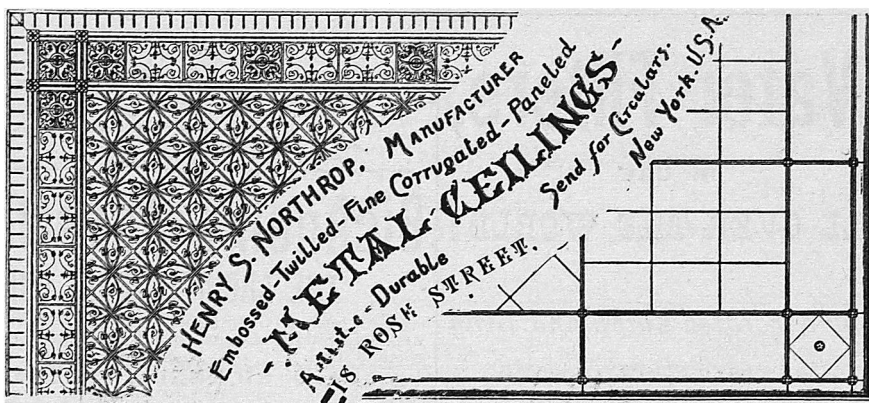 HENRY S. NORTHROP, MANUFACTURER
Embossed-Twilled-Fine Corrugated-Paneled
-METAL CEILINGS-
Artistic-Durable Send for Circulars.
18 ROSE STREET. New York. U.S.A.